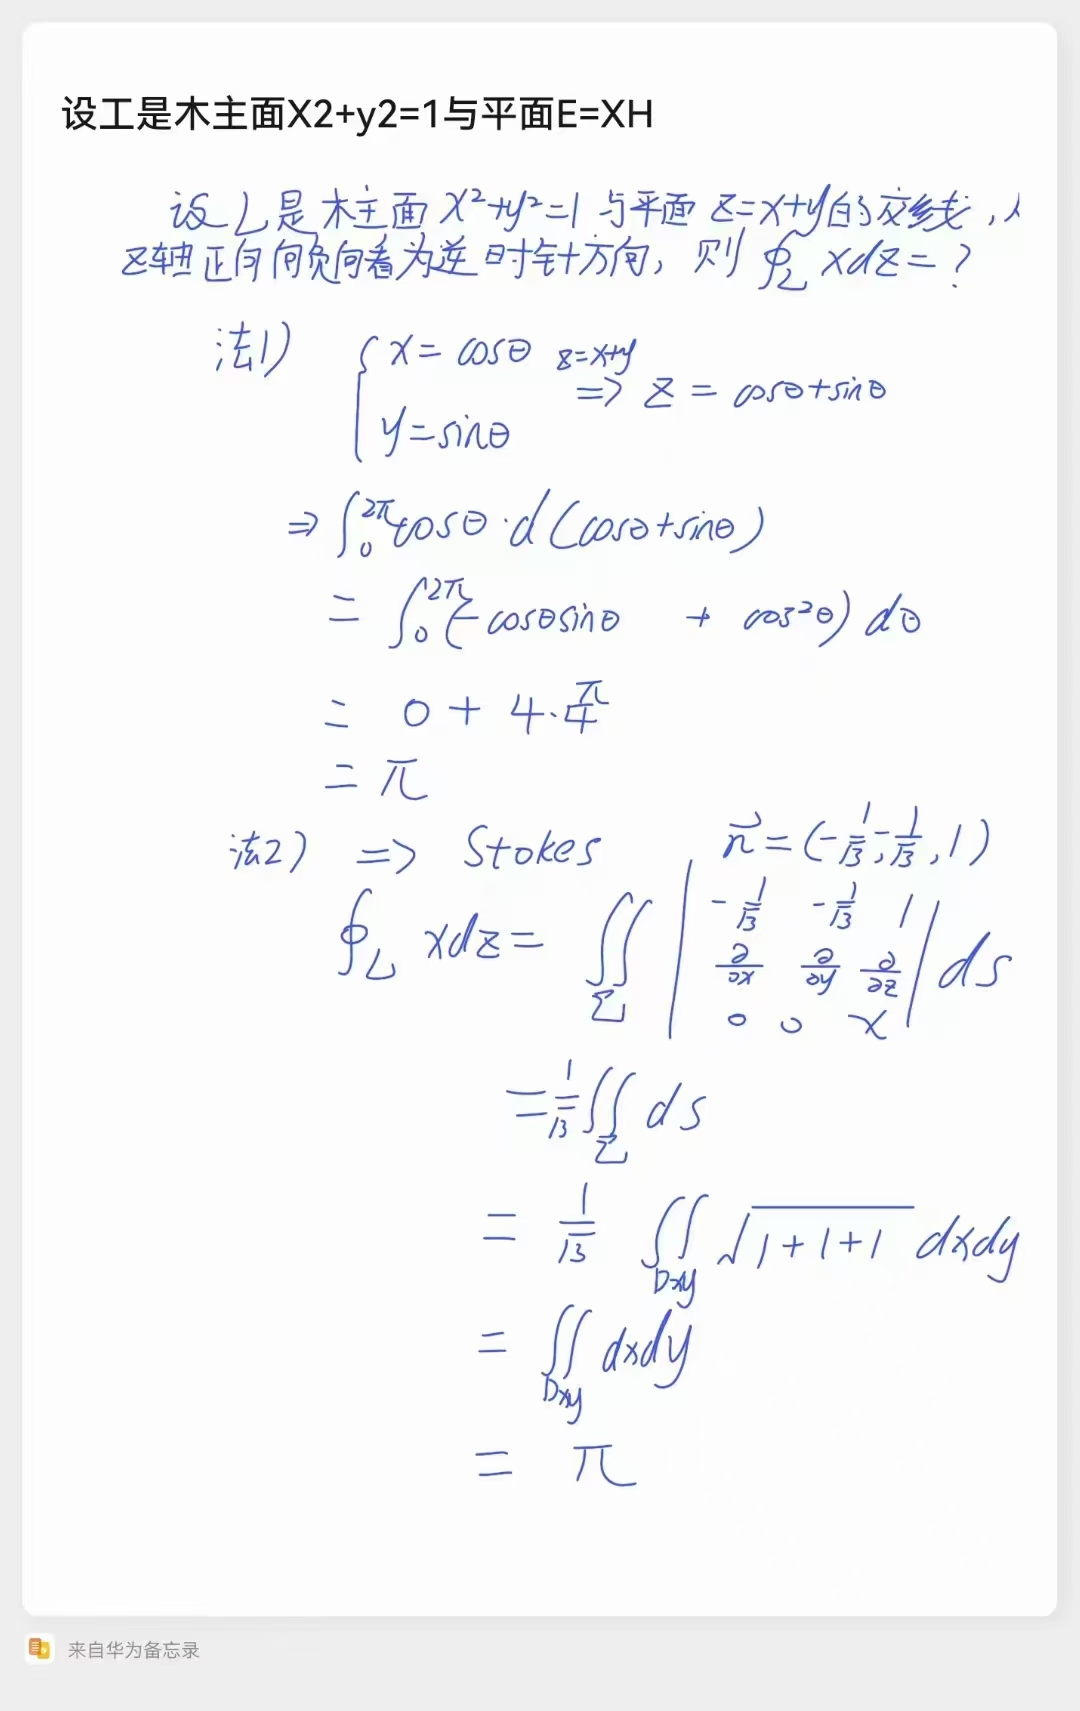 设工是木主面X2+y2=1与平面E=XH
设L是木主面x²+y²=1与平面z=x+y的交线，从
z轴正向向负向看为逆时针方向，则∮_L xdz=?
法1） { x=cosθ z=x+y
=> z=cosθ+sinθ
y=sinθ
=> ∫₀^2π cosθ·d(cosθ+sinθ)
= ∫₀^2π (-cosθsinθ + cos²θ)dθ
= 0+4·π/4
= π
法2） => Stokes n⃗=(-1/√3,-1/√3,1)
∮_L xdz= ∬_Σ | -1/√3 -1/√3 1 |
∂/∂x ∂/∂y ∂/∂z ds
0 0 x
=1/√3 ∬_Σ ds
= 1/√3 ∬_Dxy √1+1+1 dxdy
= ∬_Dxy dxdy
= π
来自华为备忘录